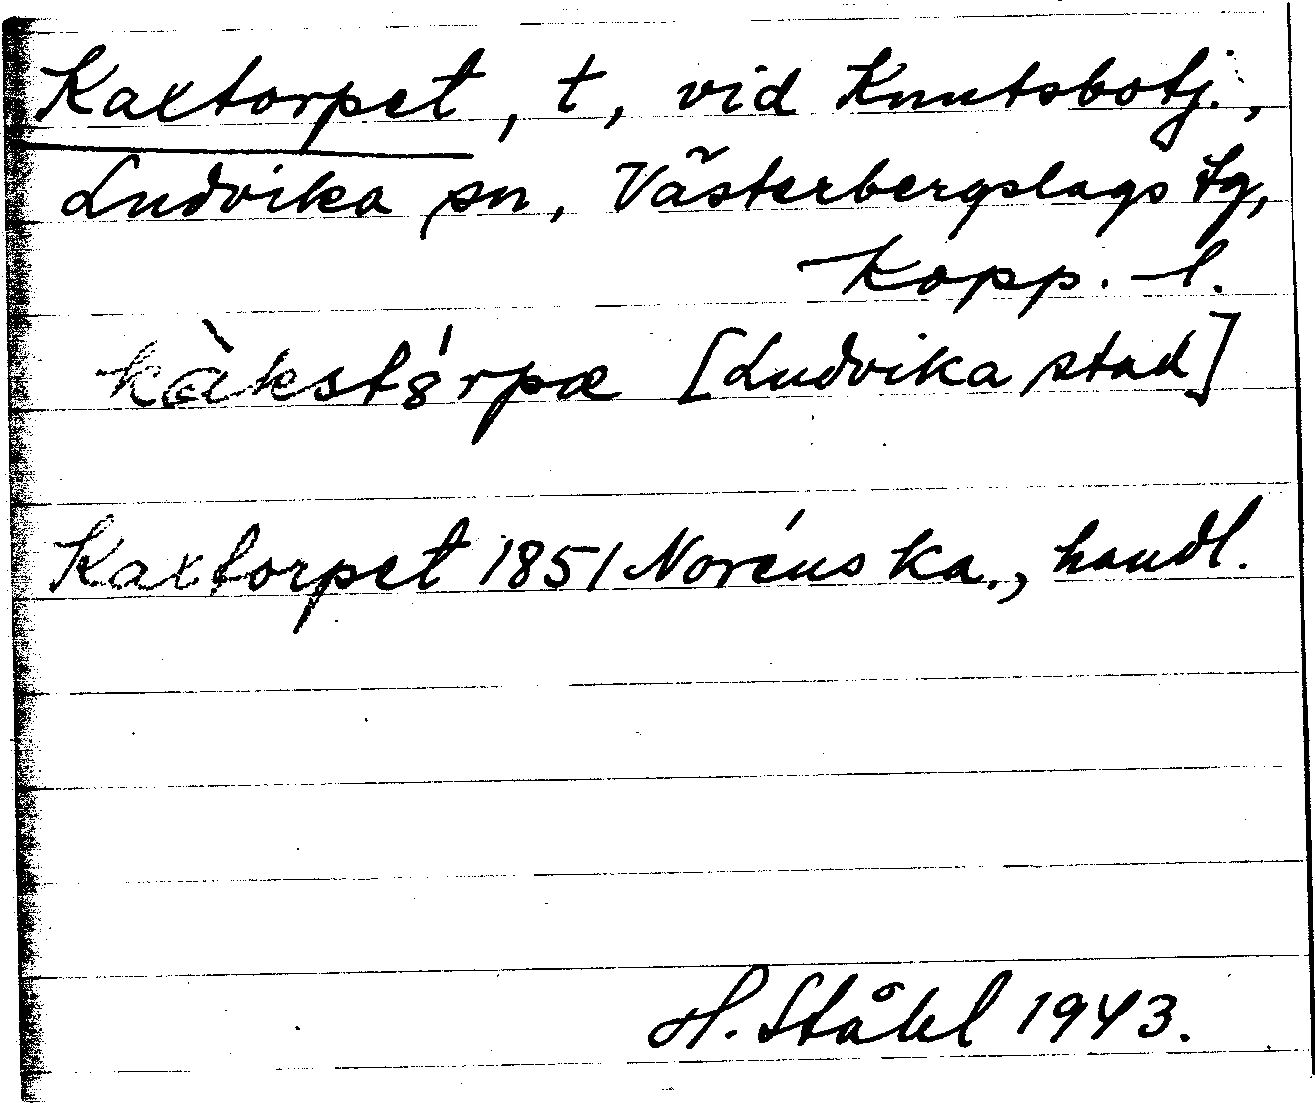 Kaxtorpet, t, vid Knutsbotj.,
Ludvika sn, Västerbergslags tg,
Kopp. l.
kàkstó̱rpæ [Ludvika stad]
Kaxtorpet 1851 Noréns ka., handl.
H. Ståhl 1943.